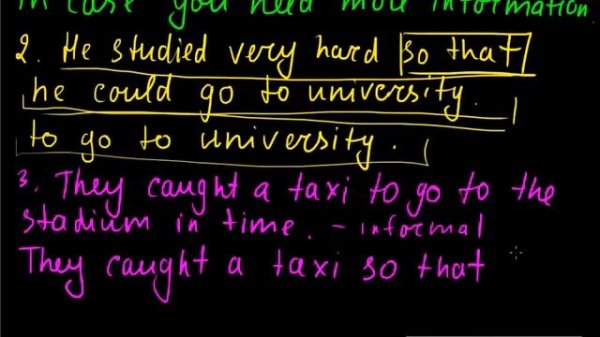 in case you need more information
2. He studied very hard so that
he could go to university.
to go to university.
3. They caught a taxi to go to the
stadium in time. - informal
They caught a taxi so that